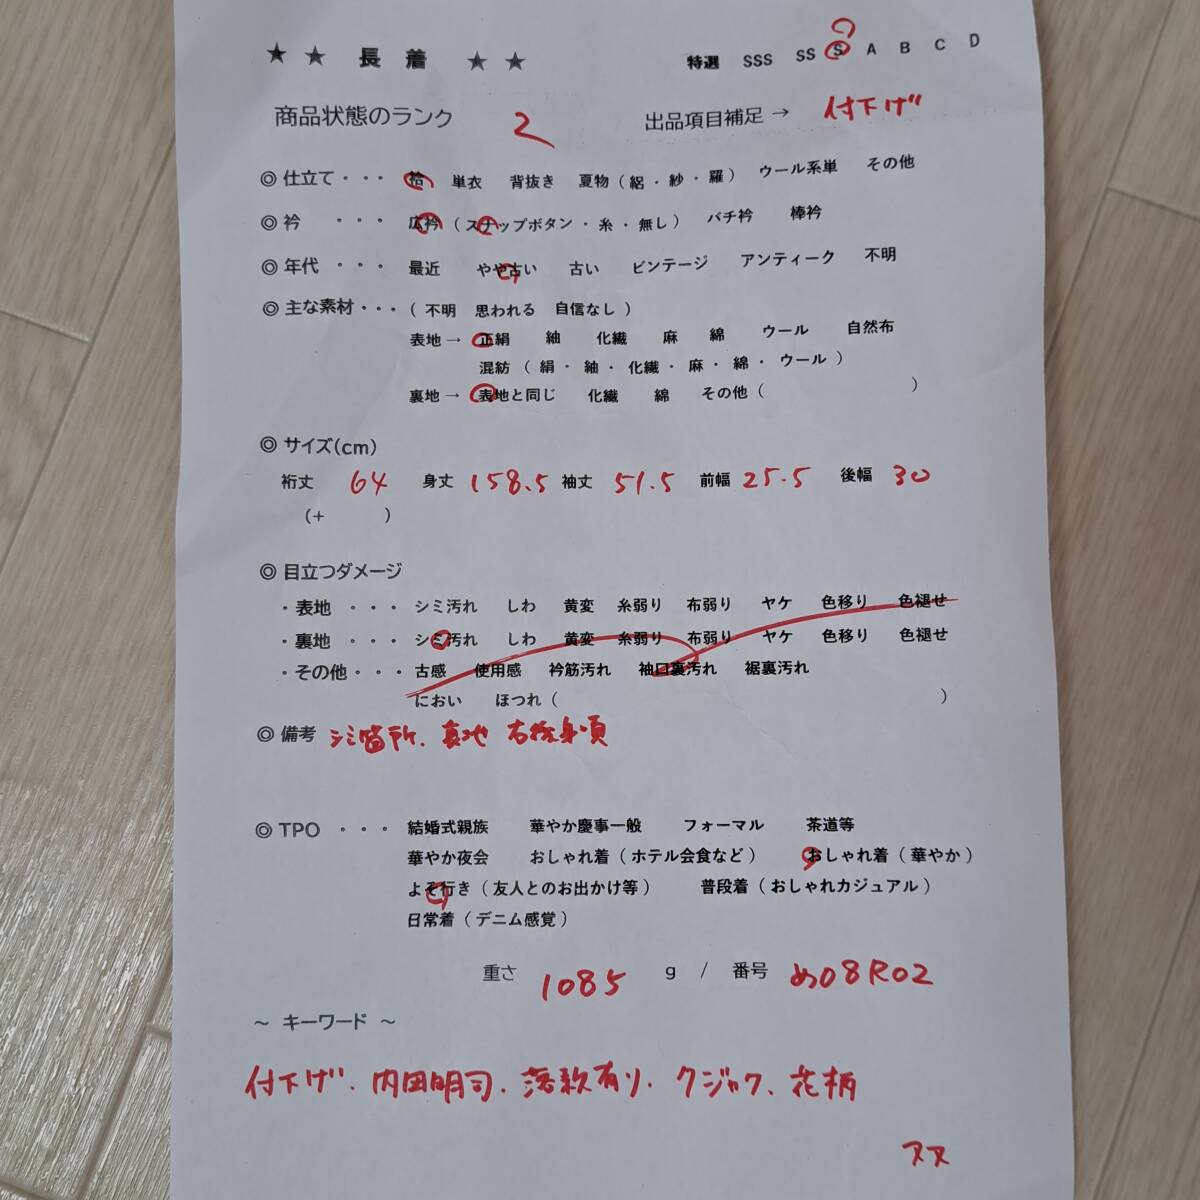 ★ ★ 長 着 ★ ★ 特選 SSS SS S A B C D
商品状態のランク 2 出品項目補足 → 付下げ
◎ 仕立て ・・・ 袷 単衣 背抜き 夏物 ( 絽 ・ 紗 ・ 羅 ) ウール系単 その他
◎ 衿 ・・・ 広衿 ( スナップボタン ・ 糸 ・ 無し ) バチ衿 棒衿
◎ 年代 ・・・ 最近 やや古い 古い ビンテージ アンティーク 不明
◎ 主な素材 ・・・ ( 不明 思われる 自信なし )
表地 → 正絹 紬 化繊 麻 綿 ウール 自然布
混紡 ( 絹 ・ 紬 ・ 化繊 ・ 麻 ・ 綿 ・ ウール )
裏地 → 表地と同じ 化繊 綿 その他 ( )
◎ サイズ(cm)
裄丈 64 身丈 158.5 袖丈 51.5 前幅 25.5 後幅 30
(+ )
◎ 目立つダメージ
・表地 ・・・ シミ汚れ しわ 黄変 糸弱り 布弱り ヤケ 色移り 色褪せ
・裏地 ・・・ シミ汚れ しわ 黄変 糸弱り 布弱り ヤケ 色移り 色褪せ
・その他 ・・・ 古感 使用感 衿筋汚れ 袖口裏汚れ 裾裏汚れ
におい ほつれ ( )
◎ 備考 シミ箇所、裏地 右後身頃
◎ TPO ・・・ 結婚式親族 華やか慶事一般 フォーマル 茶道等
華やか夜会 おしゃれ着 ( ホテル会食など ) おしゃれ着 ( 華やか )
よそ行き ( 友人とのお出かけ等 ) 普段着 ( おしゃれカジュアル )
日常着 ( デニム感覚 )
重さ 1085 g / 番号 め08R02
～ キーワード ～
付下げ、内田明司、落款有り、クジャク、花柄